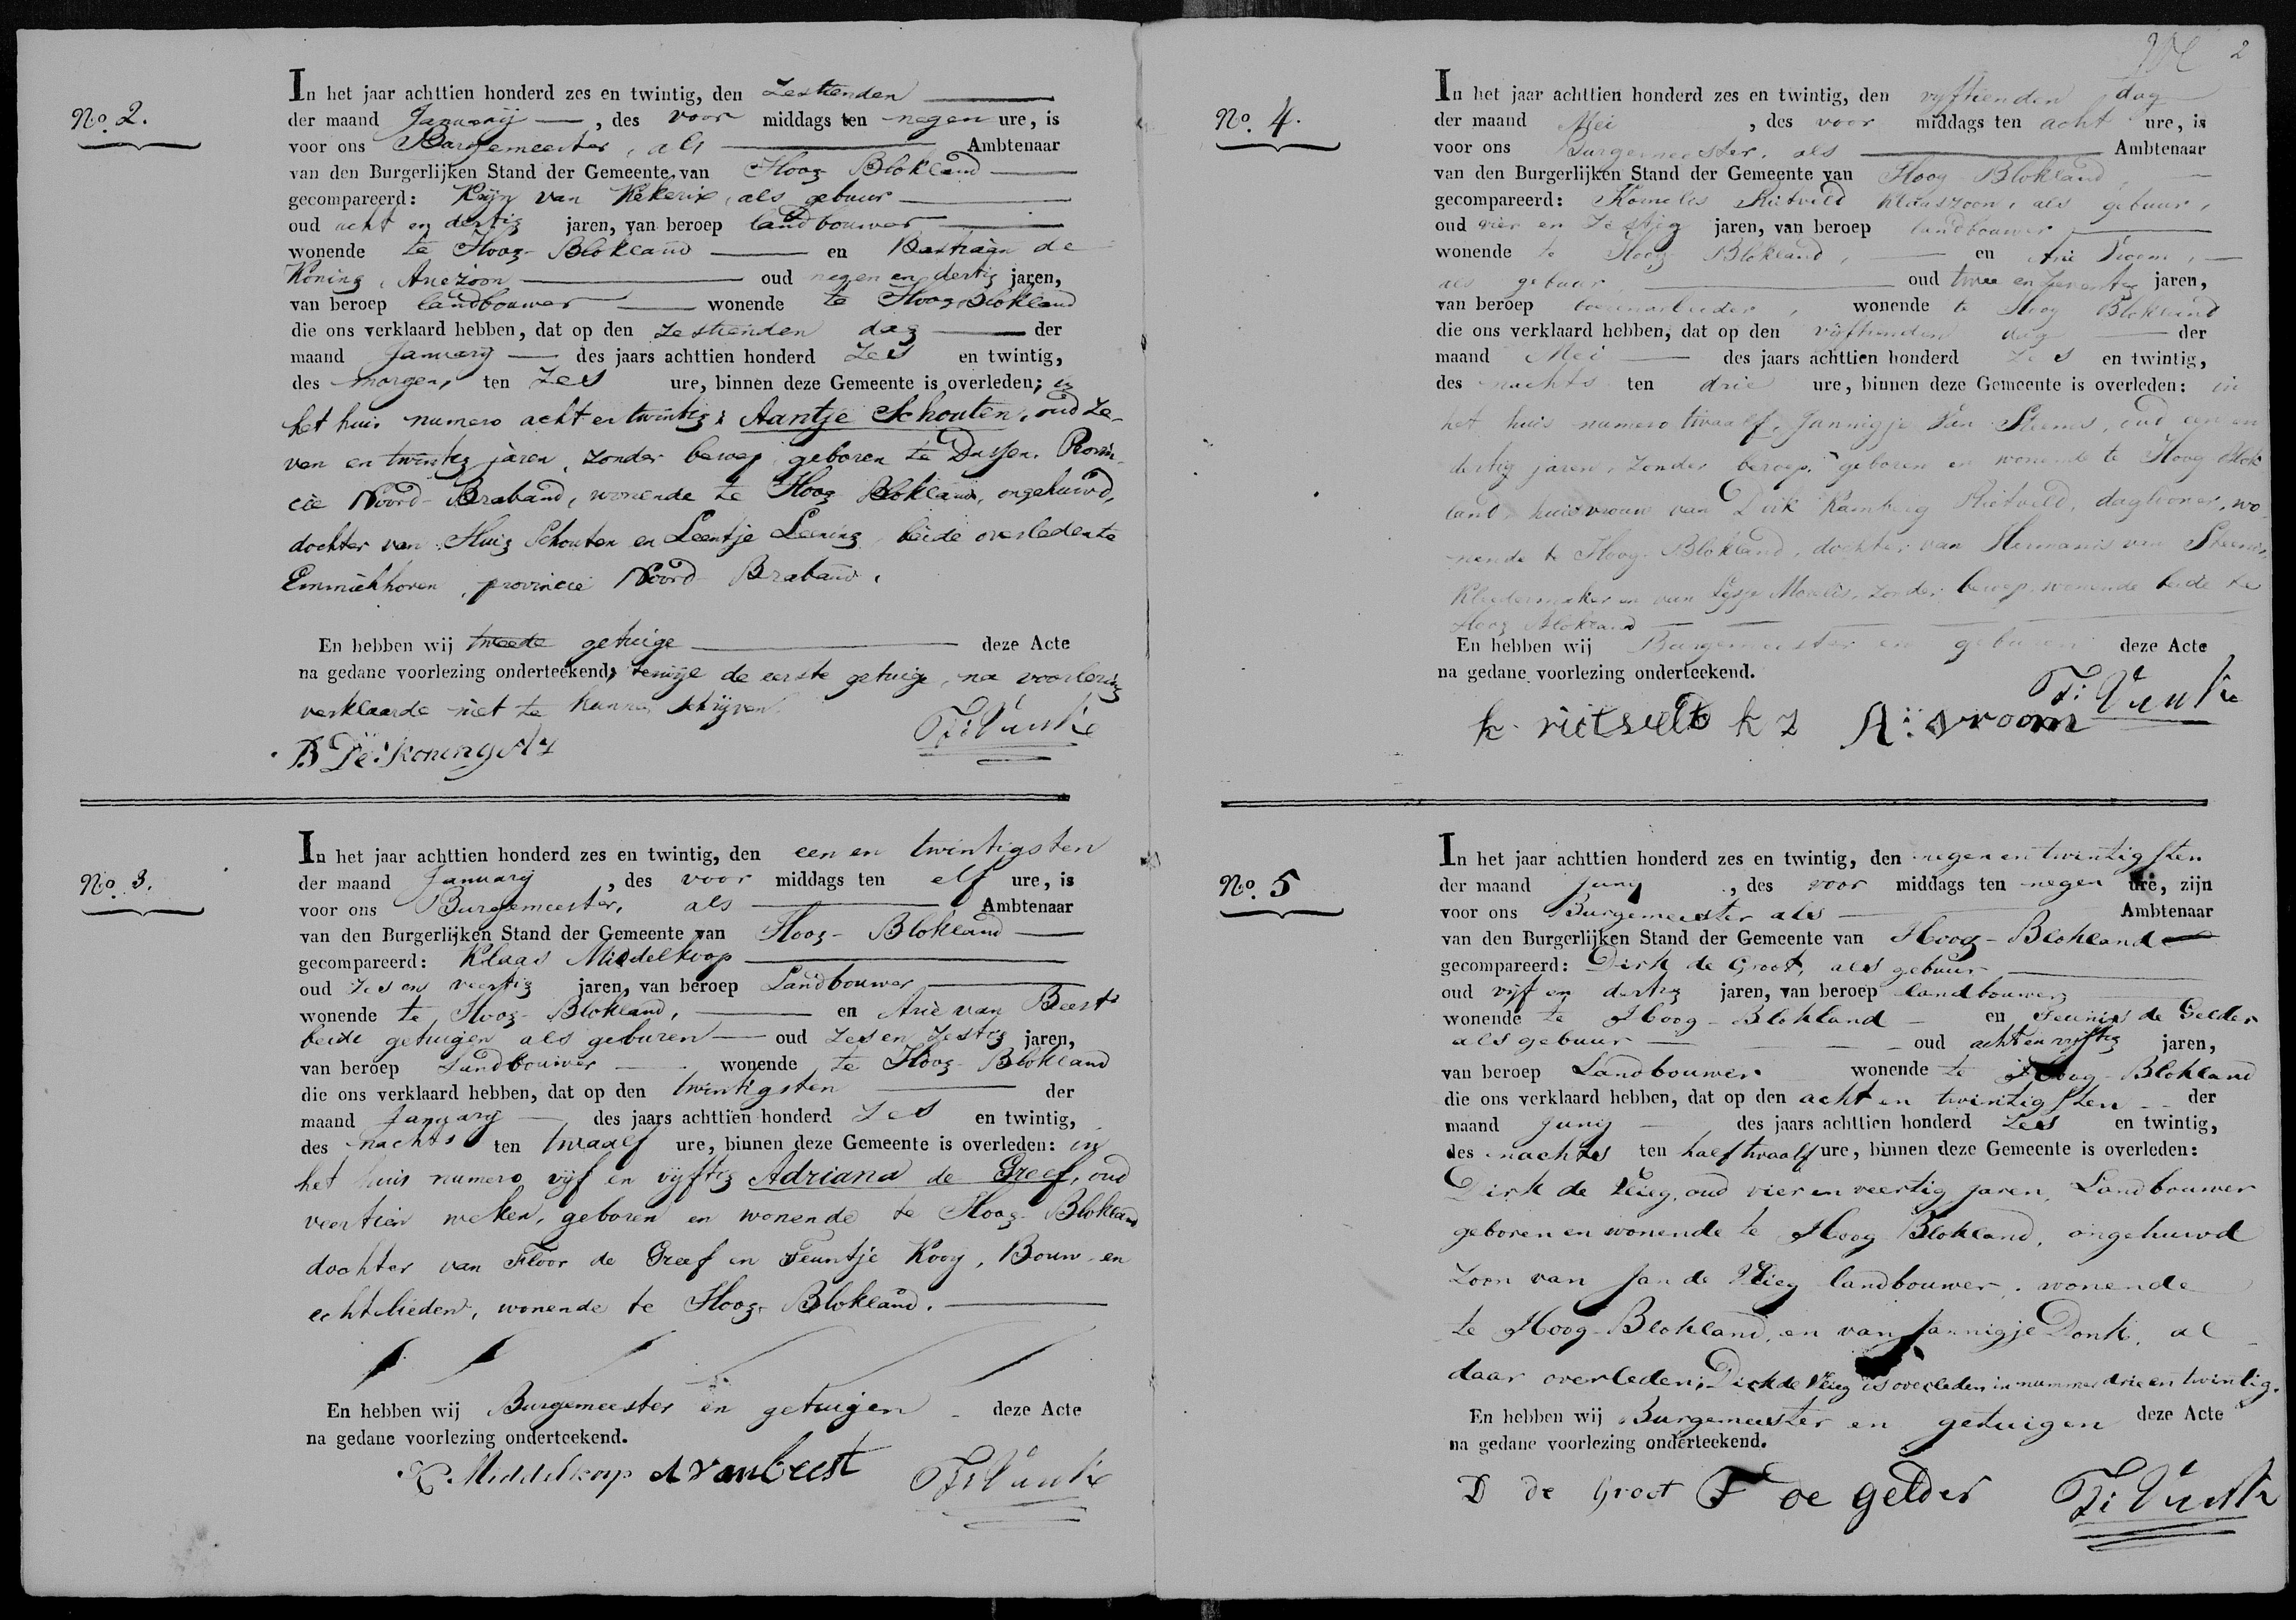 No. 2.
In het jaar achttien honderd zes en twintig, den Zestienden
der maand Januarij, des voor middags ten negen ure, is
voor ons Burgemeester, als Ambtenaar
van den Burgerlijken Stand der Gemeente van Hoog Blokland
gecompareerd: van Kekerix, als gebuur
oud acht en dertig jaren, van beroep landbouwer
wonende te Hoog-Blokland en Bastiaan de
Koning, Ariezoon oud negen en dertig jaren,
van beroep landbouwer wonende te Hoog Blokland
die ons verklaard hebben, dat op den zestienden dag der
maand Januarij des jaars achttien honderd Zes en twintig,
des morgens ten Zes ure, binnen deze Gemeente is overleden; in
het huis numero acht en twintig; Aantje Schouten, oud Ze-
ven en twintig jaren, zonder beroep, geboren te Dussen, Provin-
cie Noord-Braband, wonende te Hoog Blokland, ongehuwd,
dochter van Huig Schouten en Leentje Leening, beide overleden te
Emmickhoven, provincie Noord Braband.
En hebben wij tweede getuige deze Acte
na gedane voorlezing onderteekend, terwijl de eerste getuige, na voorlezing
verklaarde niet te kunnen schrijven.
B De: koning Az F: Vunk
No. 3.
In het jaar achttien honderd zes en twintig, den een en twintigsten
der maand Januarij, des voor middags ten elf ure, is
voor ons Burgemeester, als Ambtenaar
van den Burgerlijken Stand der Gemeente van Hoog-Blokland
gecompareerd: Klaas Middelkoop
oud Zes en veertig jaren, van beroep Landbouwer
wonende te Hoog-Blokland, en Arie van Beest
beide getuigen als geburen oud Zes en Zestig jaren,
van beroep Landbouwer wonende te Hoog-Blokland
die ons verklaard hebben, dat op den twintigsten der
maand Januarij des jaars achttien honderd Zes en twintig,
des nachts ten twaalf ure, binnen deze Gemeente is overleden: in
het huis numero vijf en vijftig Adriana de Greef, oud
veertien weken, geboren en wonende te Hoog-Blokland
dochter van Floor de Greef en Teuntje Kooy, Bouw-en
echtlieden, wonende te Hoog-Blokland.
En hebben wij Burgemeester en getuigen deze Acte
na gedane voorlezing onderteekend.
K Middelkoop A van beest F: Vunk
2
No. 4.
In het jaar achttien honderd zes en twintig, den vijftienden dag
der maand Mei, des voor middags ten acht ure, is
voor ons Burgemeester, als Ambtenaar
van den Burgerlijken Stand der Gemeente van Hoog-Blokland,
gecompareerd: Kornelis Rietveld Klaaszoon, als gebuur,
oud vier en Zestig jaren, van beroep landbouwer
wonende te Hoog Blokland, en Arie Vroom,
als gebuur, oud twee en zeventig jaren,
van beroep wonende te Hoog Blokland
die ons verklaard hebben, dat op den vijftienden dag der
maand Mei des jaars achttien honderd Zes en twintig,
des nachts ten drie ure, binnen deze Gemeente is overleden: in
het huis numero twaalf, Jannigje van Steenis, oud een en
dertig jaren, zonder beroep, geboren en wonende te Hoog Blok
land, huisvrouw van Dirk Kamberg Rietveld, daglooner, wo
nende te Hoog-Blokland, dochter van Hermanis van Steenis
Kleedermaker en van Morelis, zonder beroep, wonende beide te
Hoog Blokland
En hebben wij Burgemeester en geburen deze Acte
na gedane voorlezing onderteekend.
F: Vunk
k rietveld k z A: vroom
No. 5
In het jaar achttien honderd zes en twintig, den negen en twintigsten
der maand Junij, des voor middags ten negen ure, zijn
voor ons Burgemeester als Ambtenaar
van den Burgerlijken Stand der Gemeente van Hoog-Blokland
gecompareerd: Dirk de Groot, als gebuur
oud vijf en dertig jaren, van beroep landbouwer
wonende te Hoog-Blokland en Teunis de Gelder
als gebuur oud acht en vijftig jaren,
van beroep Landbouwer wonende te Hoog-Blokland
die ons verklaard hebben, dat op den acht en twintigsten der
maand Junij des jaars achttien honderd Zes en twintig,
des nachts ten half twaalf ure, binnen deze Gemeente is overleden:
Dirk de Vlieg, oud vier en veertig jaren, Landbouwer
geboren en wonende te Hoog Blokland, ongehuwd
zoon van Jan de Vlieg landbouwer, wonende
te Hoog-Blokland, en van Jannigje Donk, al
daar overleden; Dirk de Vlieg is overleden in nummer drie en twintig.
En hebben wij Burgemeester en getuigen deze Acte
na gedane voorlezing onderteekend.
D de Groot T de gelder F: Vunk